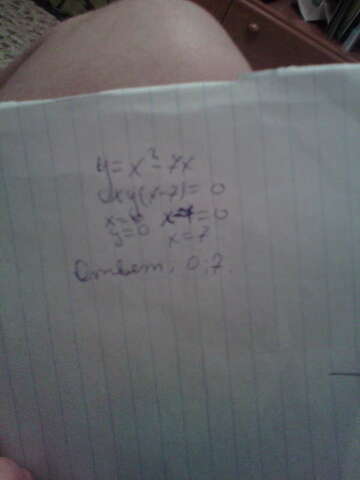 y = x² - 7x
xy(x-7) = 0
x=0 x-7=0
y=0 x=7
Ответ: 0; 7.